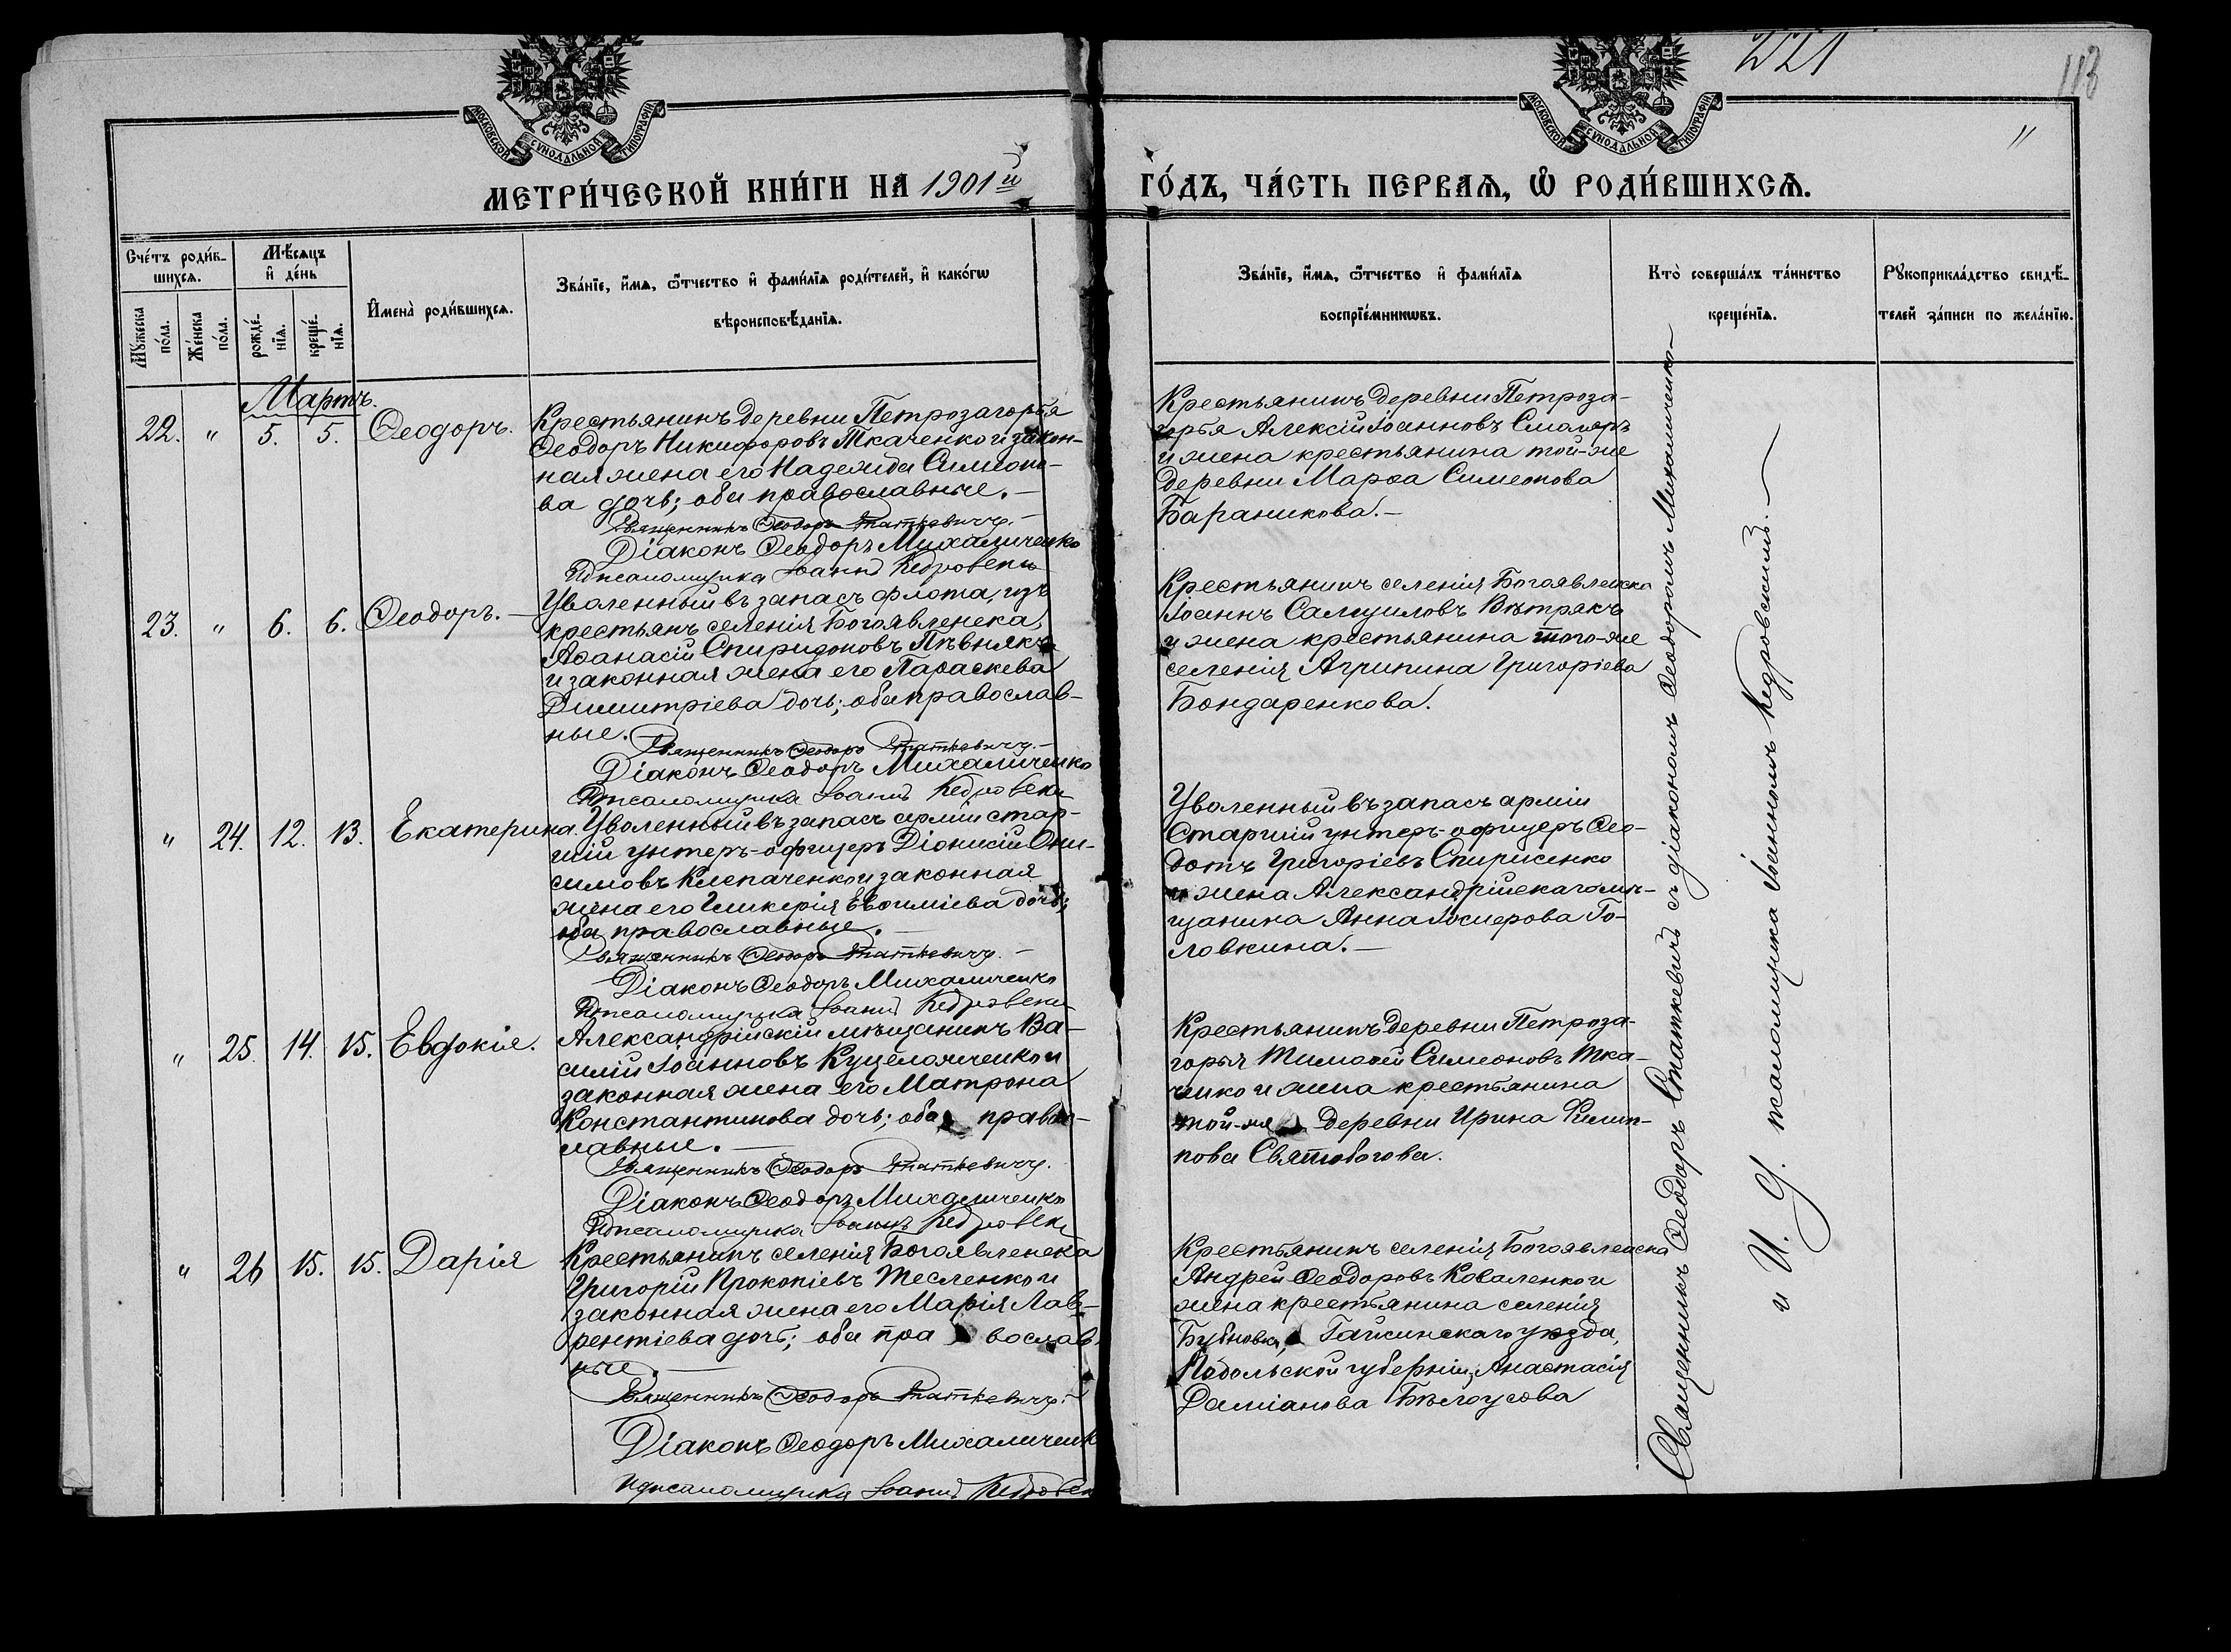 МОСКОВСКОЙ СѴНОДАЛЬНОЙ ТИПОГРАФІИ
МОСКОВСКОЙ СѴНОДАЛЬНОЙ ТИПОГРАФІИ
221
113
МЕТРИ́ЧЕСКОЙ КНИ́ГИ НА 1901й
ГО́ДЪ, ЧА́СТЬ ПЕРВАѦ, Ѡ҆ РОДИ́ВШИХСѦ.
"
Сче́тъ роди́в-
шихсѧ.
Мꙋ́жеска по́ла.
Же́нска по́ла.
Мѣ́сѧцъ
и҆ де́нь
рожде́-
нїѧ.
креще́-
нїѧ.
И҆мена̀ роди́вшихсѧ.
Зва́нїе, и҆́мѧ, ѻ҆́тчество и҆ фами́лїѧ роди́телей, и҆ како́гѡ
вѣроисповѣ́данїѧ.
Зва́нїе, и҆́мѧ, ѻ҆́тчество и҆ фами́лїѧ
воспрїе́мникѡвъ.
Кто̀ соверша́лъ та́инство
креще́нїѧ.
Рꙋкоприкла́дство свидѣ́-
телей за́писи по жела́нїю.
Мартъ.
22. " 5. 5. Ѳеодоръ.
Крестьянинъ деревни Петрозагорья
Ѳеодоръ Никифоровъ Ткаченко и закон-
ная жена его Надежда Симеоно-
ва дочь; оба православные.—
Священникъ Ѳеодоръ Статкевичъ.—
Діаконъ Ѳеодоръ Михаличенко
И д псаломщика Іоаннъ Кедровскі
Крестьянинъ деревни Петроза-
горья Алексій Іоанновъ Смоляръ
и жена крестьянина той-же
деревни Марѳа Симеонова
Бараникова.—
23. " 6. 6. Ѳеодоръ.—
Уволенный въ запасъ флота, изъ
крестьянъ селенія Богоявленска,
Аѳанасій Спиридоновъ Пѣвнякъ
и законная жена его Параскева
Димитріева дочь; оба православ-
ные.
Священникъ Ѳеодоръ Статкевичъ.—
Діаконъ Ѳеодоръ Михаличенко
И д псаломщика Іоаннъ Кедровскі
Крестьянинъ селенія Богоявленска
Іоаннъ Самуиловъ Вѣтрякъ
и жена крестьянина того-же
селенія Агрипина Григоріева
Бондаренкова.
" 24. 12. 13. Екатерина.
Уволенный въ запасъ арміи стар-
шій унтеръ-офицеръ Діонисій Они-
симовъ Клепаченко и законная
жена его Гликерія Евѳиміева дочь;
оба православные.—
Священникъ Ѳеодоръ Статкевичъ.—
Діаконъ Ѳеодоръ Михаличенко
И д псаломщика Іоаннъ Кедровскі
Уволенный въ запасъ арміи
Старшій унтеръ-офицеръ Ѳео-
дотъ Григоріевъ Спирисенко
и жена Александрійскаго мѣ-
щанина Анна Іосифова Го-
ловкина.—
" 25. 14. 15. Евдокія.
Александрійскій мѣщанинъ Ва-
силій Іоанновъ и
законная жена его Матрона
Константинова дочь; оба право-
славные.—
Священникъ Ѳеодоръ Статкевичъ.
Діаконъ Ѳеодоръ Михаличенко
И д псаломщика Іоаннъ Кедровскі
Крестьянинъ деревни Петроза-
горья Тимоѳей Симеоновъ Тка-
ченко и жена крестьянина
той-же деревни Ирина Филип-
пова Святобогова.
" 26 15. 15. Дарія
Крестьянинъ селенія Богоявленска
Григорій Прокопіевъ Тесленко и
законная жена его Марія Лав-
рентіева дочь; оба православ-
ные.—
Священникъ Ѳеодоръ Статкевичъ.—
Діаконъ Ѳеодоръ Михаличенк
И д псаломщика Іоаннъ Кедровск
Крестьянинъ селенія Богоявленска
Андрей Ѳеодоровъ Коваленко и
жена крестьянина селенія
Бубновки, Гайсинскаго уѣзда,
Подольской губерніи, Анастасія
Даміанова Бѣлоусова
Священникъ Ѳеодоръ Статкевичъ съ діакономъ Ѳеодоромъ Михаличенко—
и И. Д. псаломщика Іоанномъ Кедровскимъ.—